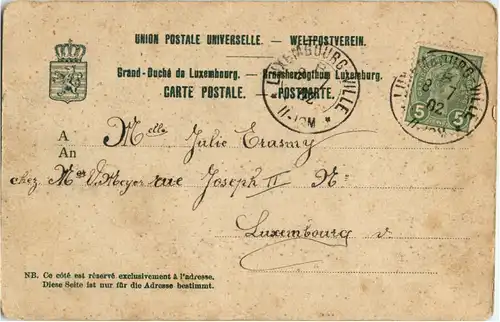 UNION POSTALE UNIVERSELLE. — WELTPOSTVEREIN.
Grand-Duché de Luxembourg. — Grossherzogthum Luxemburg.
CARTE POSTALE. — POSTKARTE.
LUXEMBOURG-VILLE
LUXEMBOURG-VILLE
7
02
5 5
A
An
Melle Julie Erasmy
chez Mr V. Meyer rue Joseph II No
Luxembourg
NB. Ce côté est réservé exclusivement à l'adresse.
Diese Seite ist nur für die Adresse bestimmt.